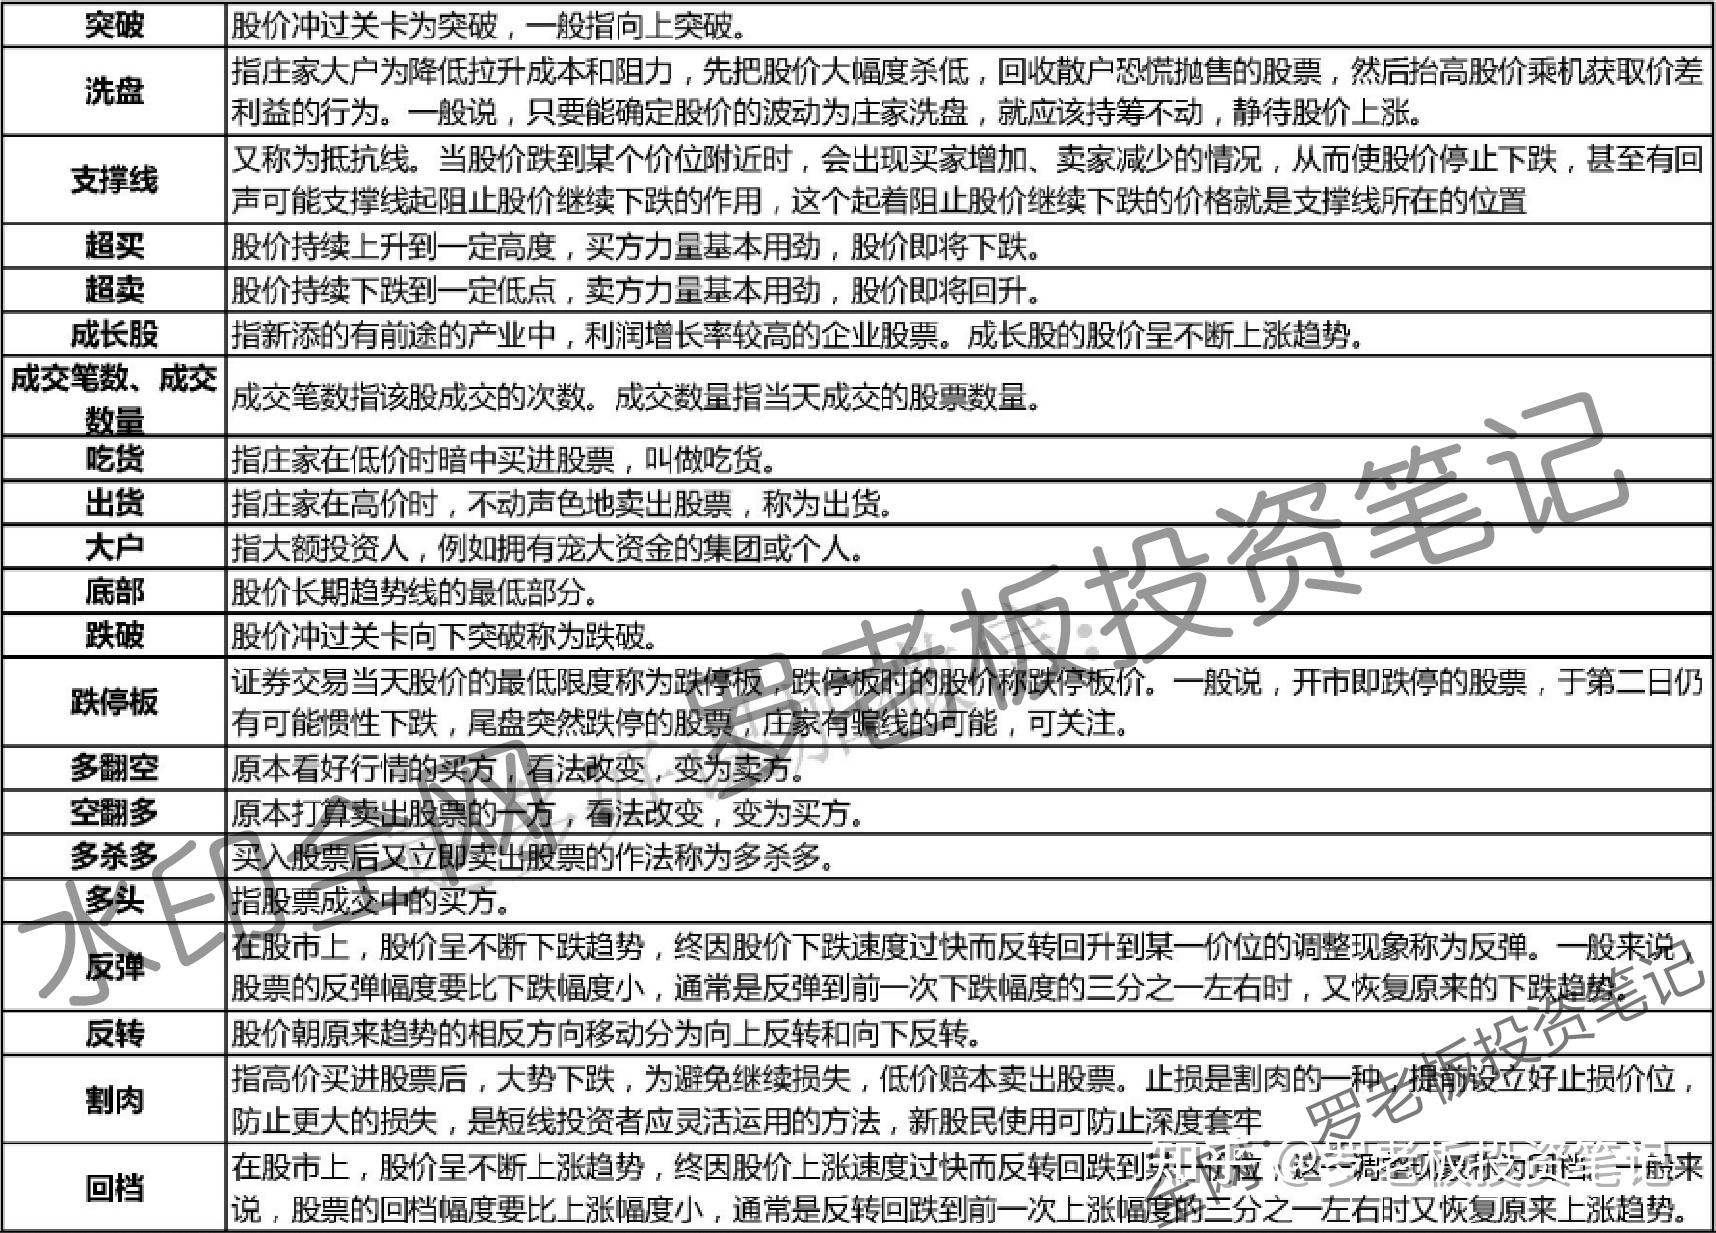 突破 股价冲过关卡为突破，一般指向上突破。
洗盘 指庄家大户为降低拉升成本和阻力，先把股价大幅度杀低，回收散户恐慌抛售的股票，然后抬高股价乘机获取价差
利益的行为。一般说，只要能确定股价的波动为庄家洗盘，就应该持筹不动，静待股价上涨。
支撑线 又称为抵抗线。当股价跌到某个价位附近时，会出现买家增加、卖家减少的情况，从而使股价停止下跌，甚至有回
声可能支撑线起阻止股价继续下跌的作用，这个起着阻止股价继续下跌的价格就是支撑线所在的位置
超买 股价持续上升到一定高度，买方力量基本用劲，股价即将下跌。
超卖 股价持续下跌到一定低点，卖方力量基本用劲，股价即将回升。
成长股 指新添的有前途的产业中，利润增长率较高的企业股票。成长股的股价呈不断上涨趋势。
成交笔数、成交
数量 成交笔数指该股成交的次数。成交数量指当天成交的股票数量。
吃货 指庄家在低价时暗中买进股票，叫做吃货。
出货 指庄家在高价时，不动声色地卖出股票，称为出货。
大户 指大额投资人，例如拥有宠大资金的集团或个人。
底部 股价长期趋势线的最低部分。
跌破 股价冲过关卡向下突破称为跌破。
跌停板 证券交易当天股价的最低限度称为跌停板，跌停板时的股价称跌停板价。一般说，开市即跌停的股票，于第二日仍
有可能惯性下跌，尾盘突然跌停的股票，庄家有骗线的可能，可关注。
多翻空 原本看好行情的买方，看法改变，变为卖方。
空翻多 原本打算卖出股票的一方，看法改变，变为买方。
多杀多 买入股票后又立即卖出股票的作法称为多杀多。
多头 指股票成交中的买方。
反弹 在股市上，股价呈不断下跌趋势，终因股价下跌速度过快而反转回升到某一价位的调整现象称为反弹。一般来说，
股票的反弹幅度要比下跌幅度小，通常是反弹到前一次下跌幅度的三分之一左右时，又恢复原来的下跌趋势。
反转 股价朝原来趋势的相反方向移动分为向上反转和向下反转。
割肉 指高价买进股票后，大势下跌，为避免继续损失，低价赔本卖出股票。止损是割肉的一种，提前设立好止损价位，
防止更大的损失，是短线投资者应灵活运用的方法，新股民使用可防止深度套牢
回档 在股市上，股价呈不断上涨趋势，终因股价上涨速度过快而反转回跌到某一价位，这一调整现象称为回档。一般来
说，股票的回档幅度要比上涨幅度小，通常是反转回跌到前一次上涨幅度的三分之一左右时又恢复原来上涨趋势。
水印全网 罗老板投资笔记
全网：罗老板投资笔记
知乎 @罗老板投资笔记